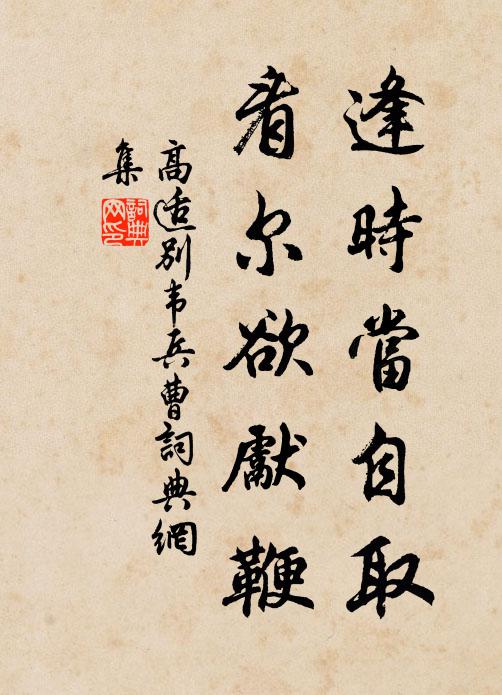 逢時當自取
看尔欲獻鞭
高适別韦兵曹詞典網
集
詞典
网印